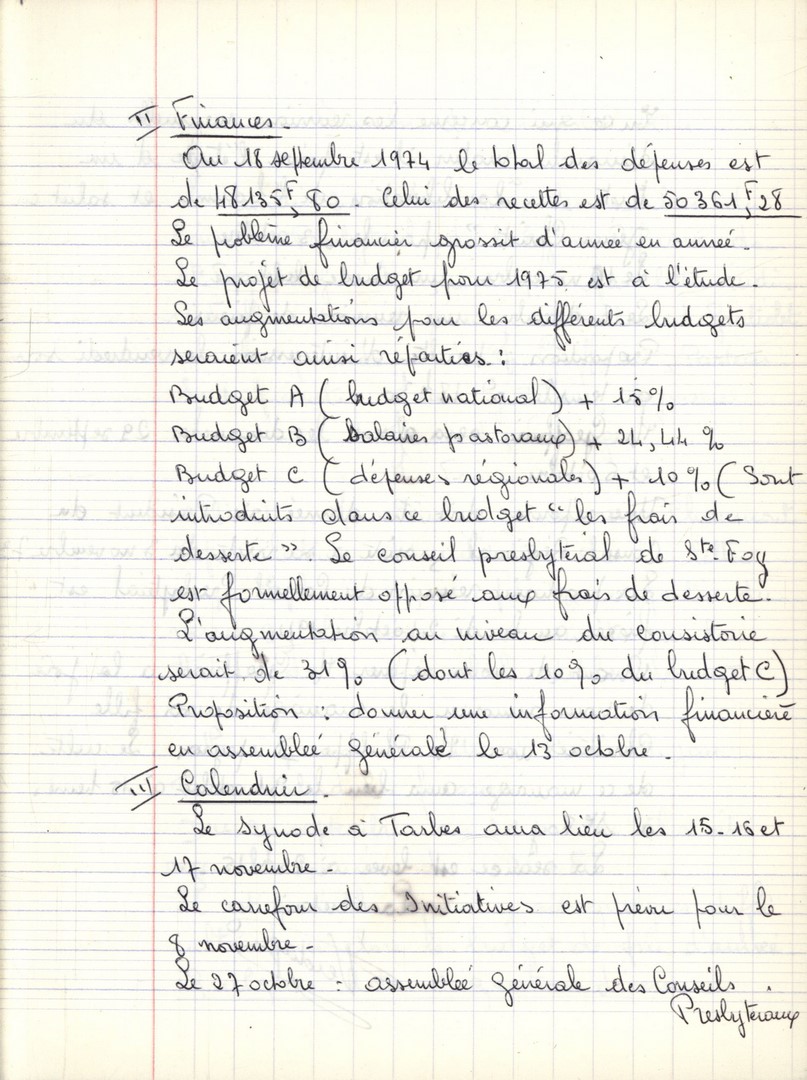 II Finances.
Au 18 septembre 1974 le total des dépenses est
de 48135F,80. Celui des recettes est de 50361F,28
Le problème financier grossit d'année en année.
Le projet de budget pour 1975 est à l'étude.
Les augmentations pour les différents budgets
seraient ainsi réparties :
Budget A (budget national) + 15%
Budget B (salaires pastoraux) + 24,44 %
Budget C (dépenses régionales) + 10% (Sont
introduits dans ce budget "les frais de
desserte". Le conseil presbytéral de Ste. Foy
est formellement opposé aux frais de desserte.
L'augmentation au niveau du consistoire
serait de 31% (dont les 10% du budget C)
Proposition : donner une information financière
en assemblée générale le 13 octobre.
III Calendrier.
Le synode à Tarbes aura lieu les 15-16 et
17 novembre.
Le carrefour des Initiatives est prévu pour le
8 novembre.
Le 27 octobre : assemblée générale des Conseils
Presbytéraux.